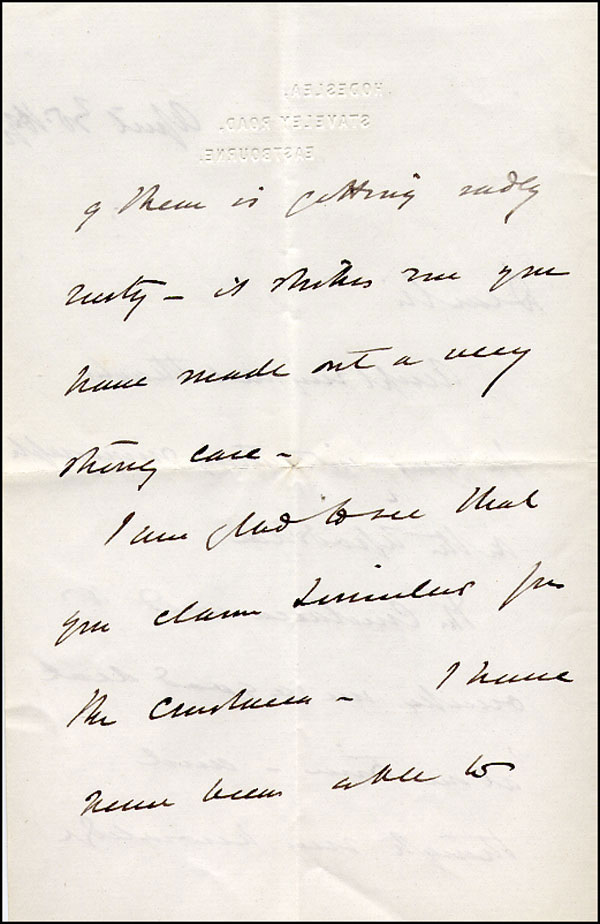 HODESLEA.
STAVELEY ROAD.
EASTBOURNE.
of them is getting sadly
rusty – it strikes me you
have made out a very
strong case –
I am glad to see that
you claim Limulus for
the Crustacea – I have
never been able to